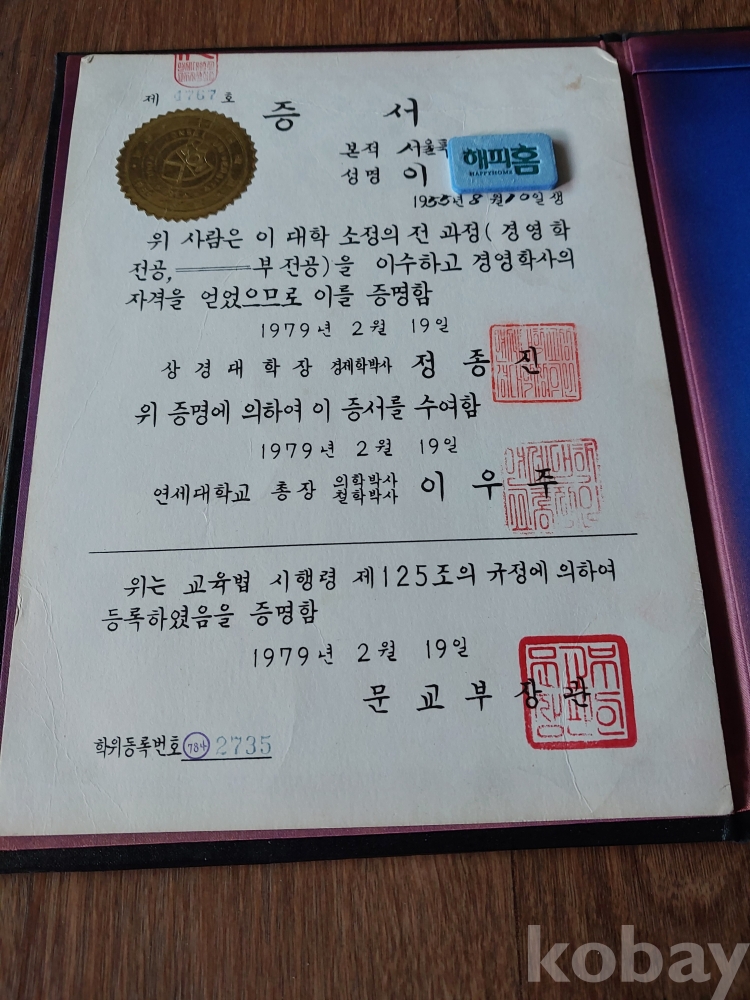 제 4767 호
증 서
본적 서울특
성명 이
해피홈
HAPPYHOME
1955년 8월 10일생
위 사람은 이 대학 소정의 전 과정(경영학
전공,———부전공)을 이수하고 경영학사의
자격을 얻었으므로 이를 증명함
1979년 2월 19일
상경대학장 경제학박사 정종진
위 증명에 의하여 이 증서를 수여함
1979년 2월 19일
연세대학교 총장 의학박사 철학박사 이우주
위는 교육법 시행령 제125조의 규정에 의하여
등록하였음을 증명함
1979년 2월 19일
문교부장관
학위등록번호 784 2735
kobay